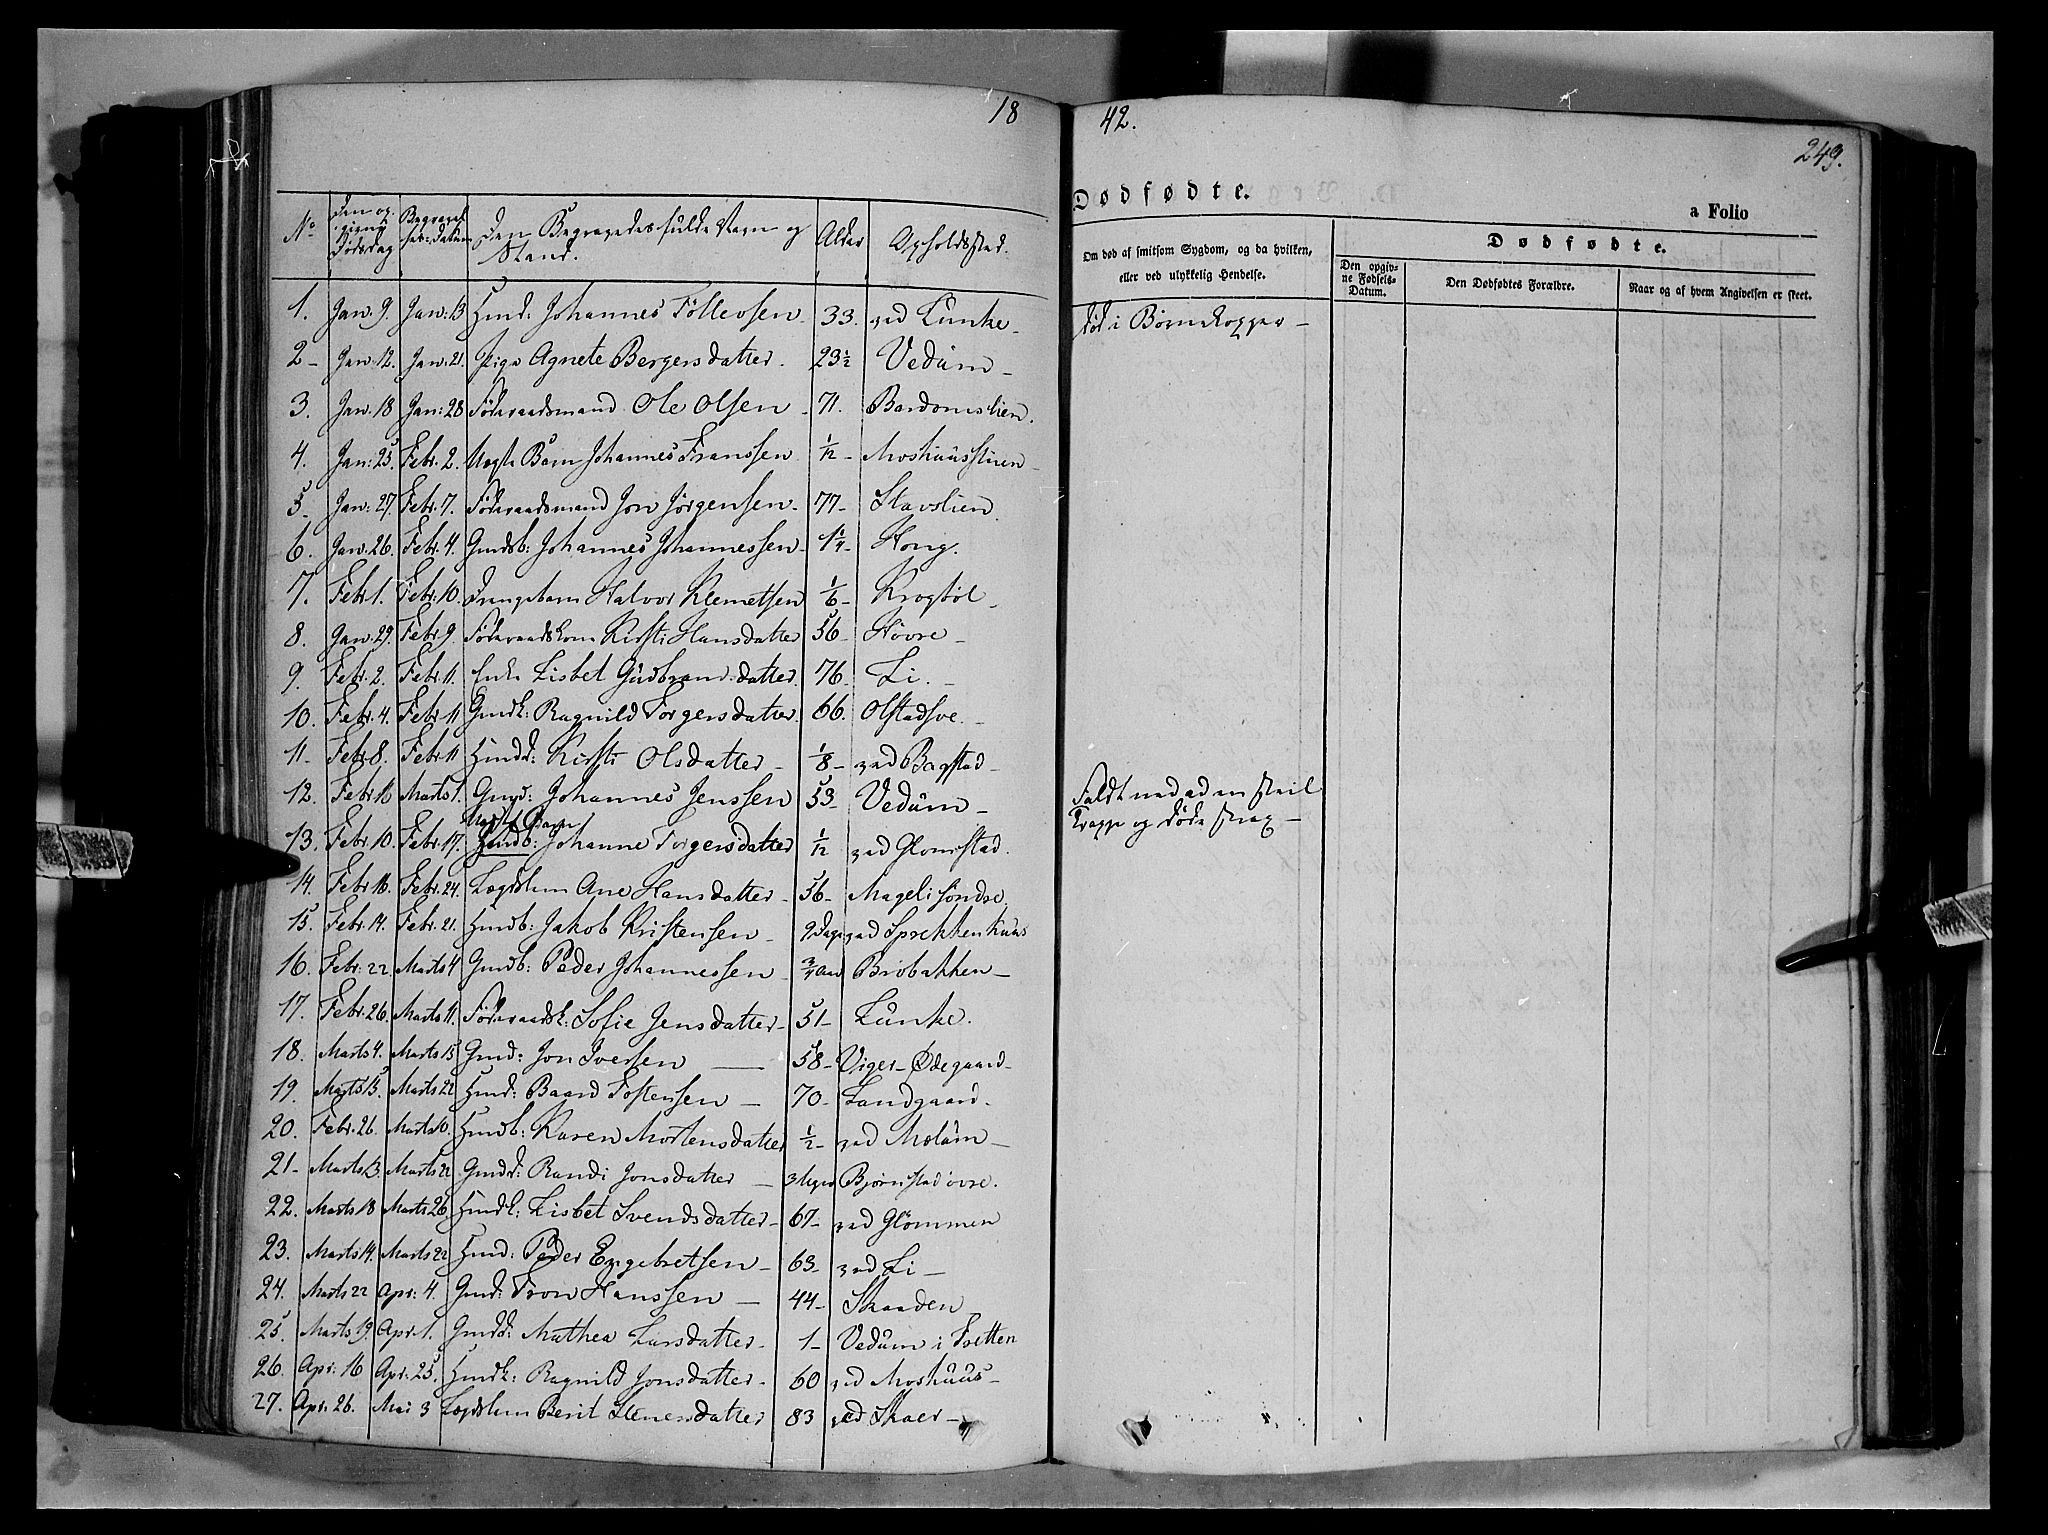 18
42.
249.
Dødfødte.
a Folio
No Den opgivne Dødsdag Begravelsesdatum Den Begravedes fulde Navn og Stand. Alder Opholdsted.
Om død af smitsom Sygdom, og da hvilken, eller ved ulykkelig Hendelse.
Dødfødte.
Den opgivne Fødsels-Datum.
Den Dødfødtes Forældre.
Naar og af hvem Angivelsen er skeet.
1. Jan: 9. Jan: 13 Huusm: Johannes Tollevsen 33. ved Lunke død i Børnekopper
2 Jan: 12. Jan: 21. Pige Agnete Bergersdatter. 23½ Vedùm
3. Jan: 18 Jan: 28 Føderaadsmand Ole Olsen 71. Bardomslien.
4. Jan: 25. Febr. 2. Uægte Barn Johannes Franssen 1/12 Moshuusstuen
5 Jan: 27. Febr. 7. Føderaadsmand Jon Jørgensen 77 Stavslien
6. Jan: 26. Febr. 4. Gmdsb: Johannes Johannessen Hong.
7. Febr 1. Febr: 10. Drengebarn Halvor Klemetsen 1/6 Krogbøl
8. Jan: 29. Febr 9. Føderaadskone Kirsti Hansdatter 56 Høvre
9. Febr. 2. Febr. 11. Enke Lisbet Gudbrandsdatter. 76 Li.
10. Febr. 4. Febr. 11 Gmdk: Ragnild Torgersdatter. 66. Olstadsve.
11 Febr. 8. Febr. 11 Hmdd: Kirsti Olsdatter 1/8 ved Bagstad
12. Febr 16 Marts 1. Gmd: Johannes Jenssen 53 Vedùm Faldt ned ad en steil
Trappe og døde strax
Uægte Barn
13. Febr. 10. Febr. 17. Hmdb: Johanne Torgersdatter 1/12 ved Glomstad.
14. Febr 16. Febr. 24. Lægdslem Ane Hansdatter 56 Mageli søndre.
15. Febr. 14. Febr. 21. Hmdb: Jakob Kristensen 9 Dage ved Sprekkenhuus
16. Febr: 22 Marts 4 Gmdb: Peder Johannessen ¾ Aar Brobakken
17. Febr. 26. Marts 11. Føderaadsk: Sofie Jensdatter 51 Lunke.
18. Marts 4. Marts 15 Gmd: Jon Iversen 58 Viger-Ødegaard
19. Marts 15. Marts 22 Hmd: Baard Tostensen 70 Landgaard.
20. Febr. 26. Marts 10. Hmdb: Karen Mortensdatter ½ ved Molùm
21 Marts 13. Marts 22 Gmdd: Randi Jonsdatter 3 Uger Bjørnstad øvre.
22. Marts 18 Marts 26. Hmdk: Lisbet Svendsdatter 67 ved Glømmen
23. Marts 14. Marts 22 Hmd: Peder Engebretsen 63 ved Li
24. Marts 22 Apr: 4. Gmd: Tron Hanssen 44 Skaaden
25. Marts 19. Apr: 1. Gmdd: Mathea Larsdatter 1 Vedùm i Tretten
26. Apr: 16 Apr: 25. Hmdk: Ragnild Jonsdatter 60 ved Moshùùs
27. Apr: 26. Mai 3 Lægdslem Berit Stenersdatter 83 ved Skaer